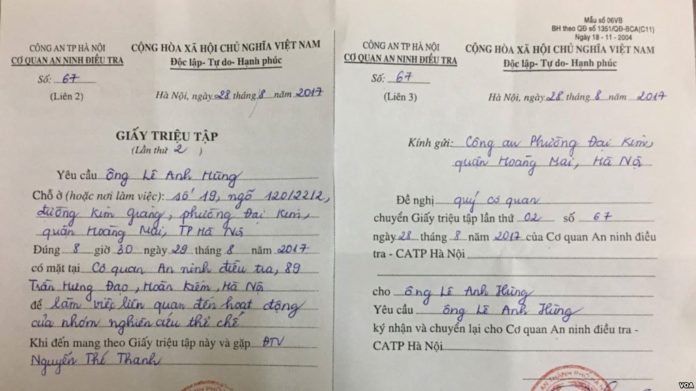 CÔNG AN TP HÀ NỘI
CƠ QUAN AN NINH ĐIỀU TRA
CỘNG HÒA XÃ HỘI CHỦ NGHĨA VIỆT NAM
Độc lập- Tự do- Hạnh phúc
Số: 67
(Liên 2)
Hà Nội, ngày 28 tháng 8 năm 2017
GIẤY TRIỆU TẬP
(Lần thứ 2)
Yêu cầu ông Lê Anh Hùng
Chỗ ở (hoặc nơi làm việc): số 19, ngõ 120/22/2,
đường Kim Giang, phường Đại Kim,
quận Hoàng Mai, TP Hà Nộ
Đúng 8 giờ 30 ngày 29 tháng 8 năm 2017
có mặt tại Cơ quan An ninh điều tra, 89
Trần Hưng Đạo, Hoàn Kiếm, Hà Nộ
để làm việc liên quan đến hoạt động
của nhóm nghiên cứu thể chế
Khi đến mang theo Giấy triệu tập này và gặp ĐTV
Nguyễn Thế Thanh
Mẫu số 06VB
BH theo QĐ số 1351/QĐ-BCA(C11)
Ngày 18 - 11 - 2004
CÔNG AN TP HÀ NỘI
CƠ QUAN AN NINH ĐIỀU TRA
CỘNG HÒA XÃ HỘI CHỦ NGHĨA VIỆT NAM
Độc lập- Tự do- Hạnh phúc
Số: 67
(Liên 3)
Hà Nội, ngày 28 tháng 8 năm 2017
Kính gửi: Công an Phường Đại Kim,
quận Hoàng Mai, Hà Nộ
Đề nghị quý cơ quan
chuyển Giấy triệu tập lần thứ 02 số 67
ngày 28 tháng 8 năm 2017 của Cơ quan An ninh điều
tra - CATP Hà Nội
cho ông Lê Anh Hùng
Yêu cầu ông Lê Anh Hùng
ký nhận và chuyển lại cho Cơ quan An ninh điều tra -
CATP Hà Nội
VOA